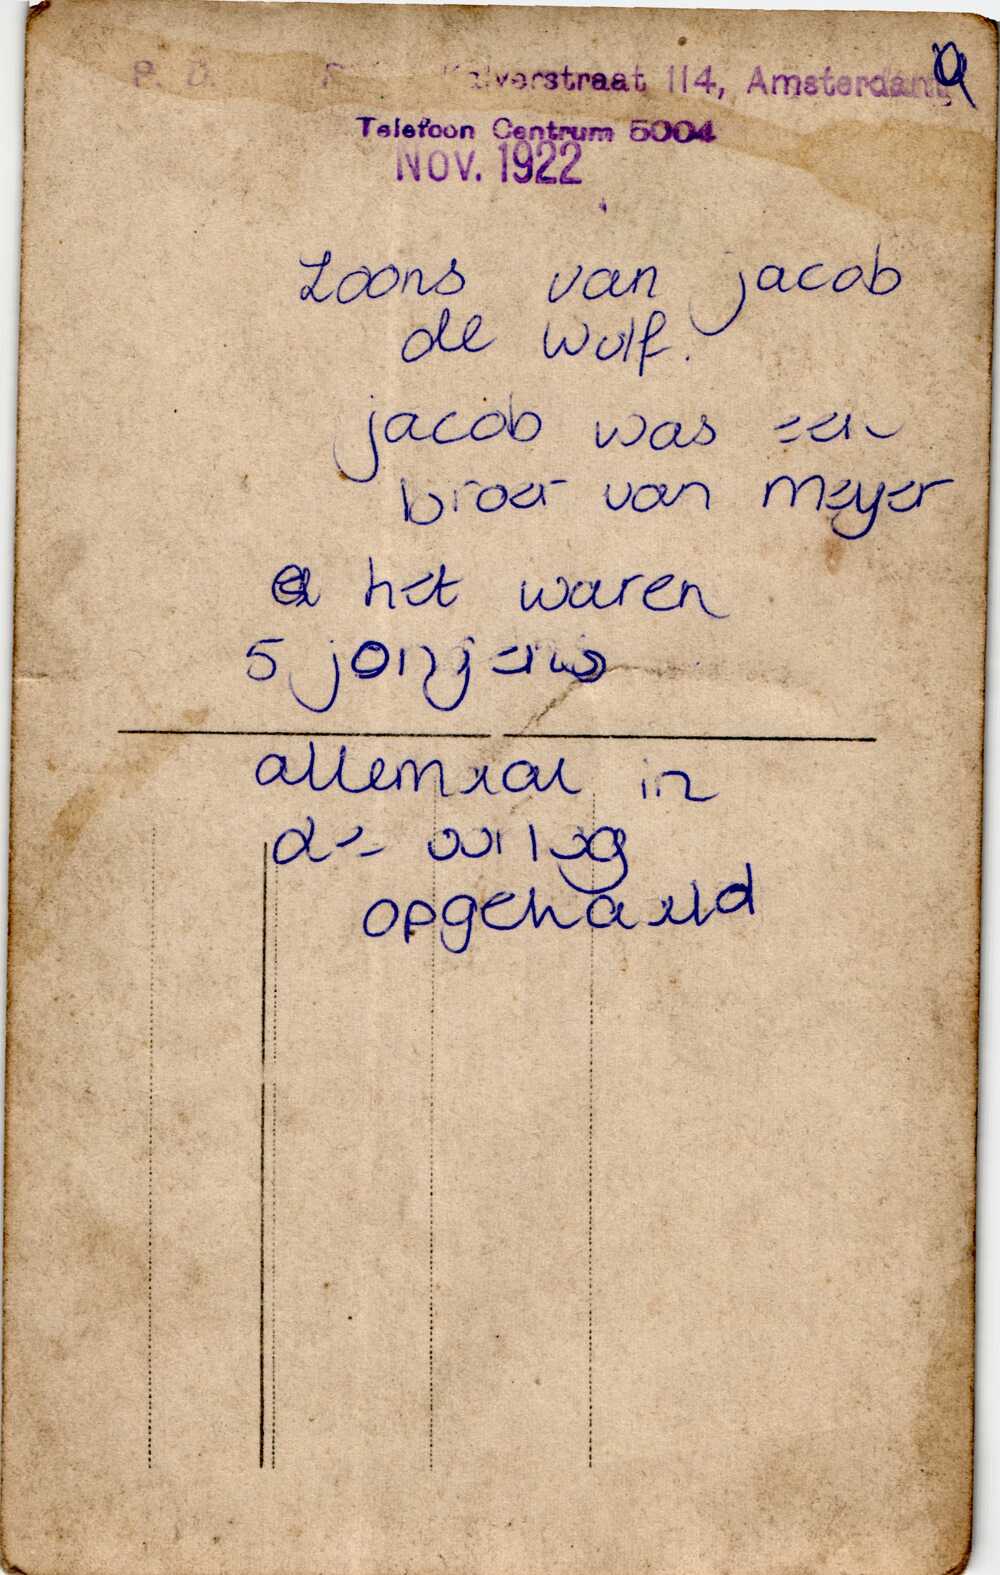 Kalverstraat 114, Amsterdam
Telefoon Centrum 5004
Nov. 1922
zoons van jacob
de wolf.
jacob was een
broer van meyer
het waren
5 jongens
allemaal in
de oorlog
opgehaald